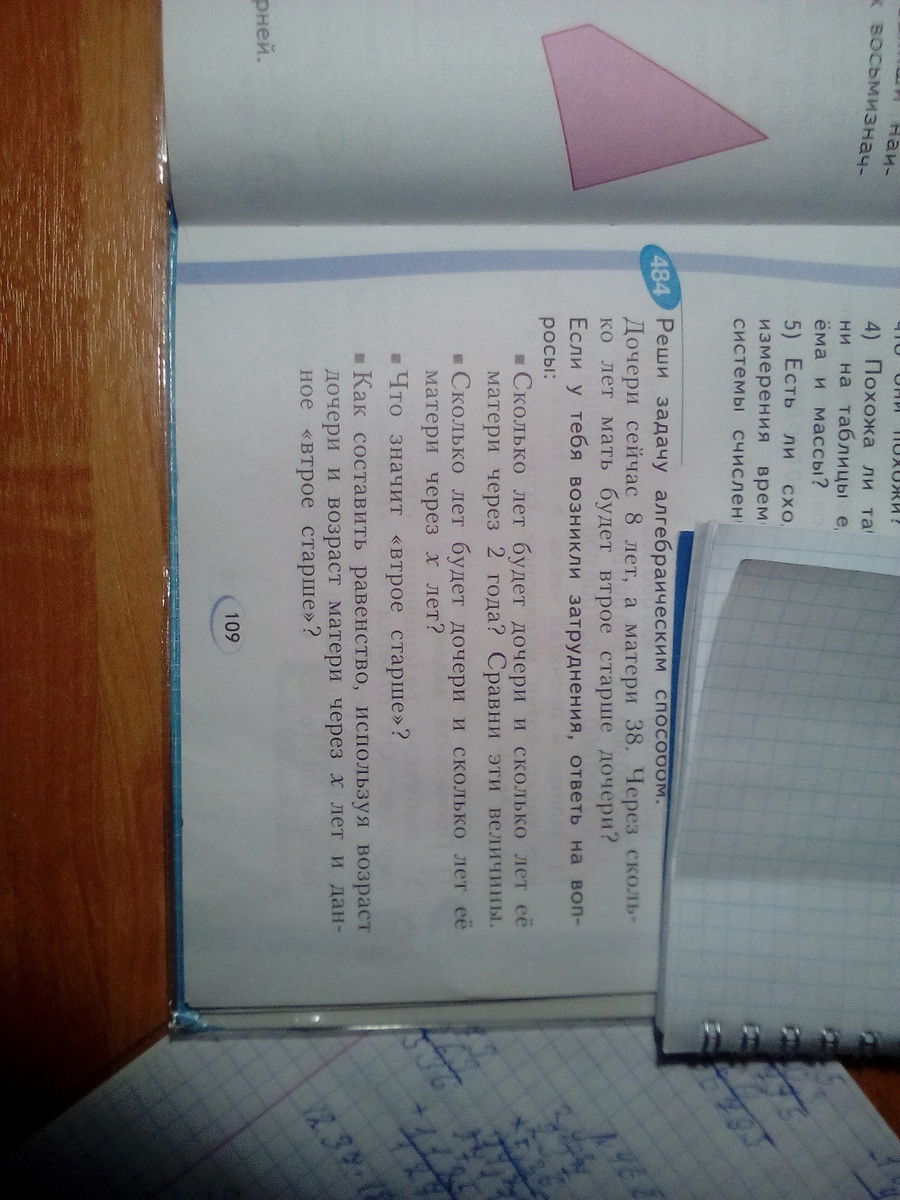 рней.
к восьмизнач-
4) Похожа ли
ни на таблицы
ёма и массы?
5) Есть ли
измерения
системы
484 Реши задачу алгебраическим способом.
Дочери сейчас 8 лет, а матери 38. Через сколь-
ко лет мать будет втрое старше дочери?
Если у тебя возникли затруднения, ответь на воп-
росы:
▪ Сколько лет будет дочери и сколько лет её
матери через 2 года? Сравни эти величины.
▪ Сколько лет будет дочери и сколько лет её
матери через x лет?
▪ Что значит «втрое старше»?
▪ Как составить равенство, используя возраст
дочери и возраст матери через x лет и дан-
ное «втрое старше»?
109